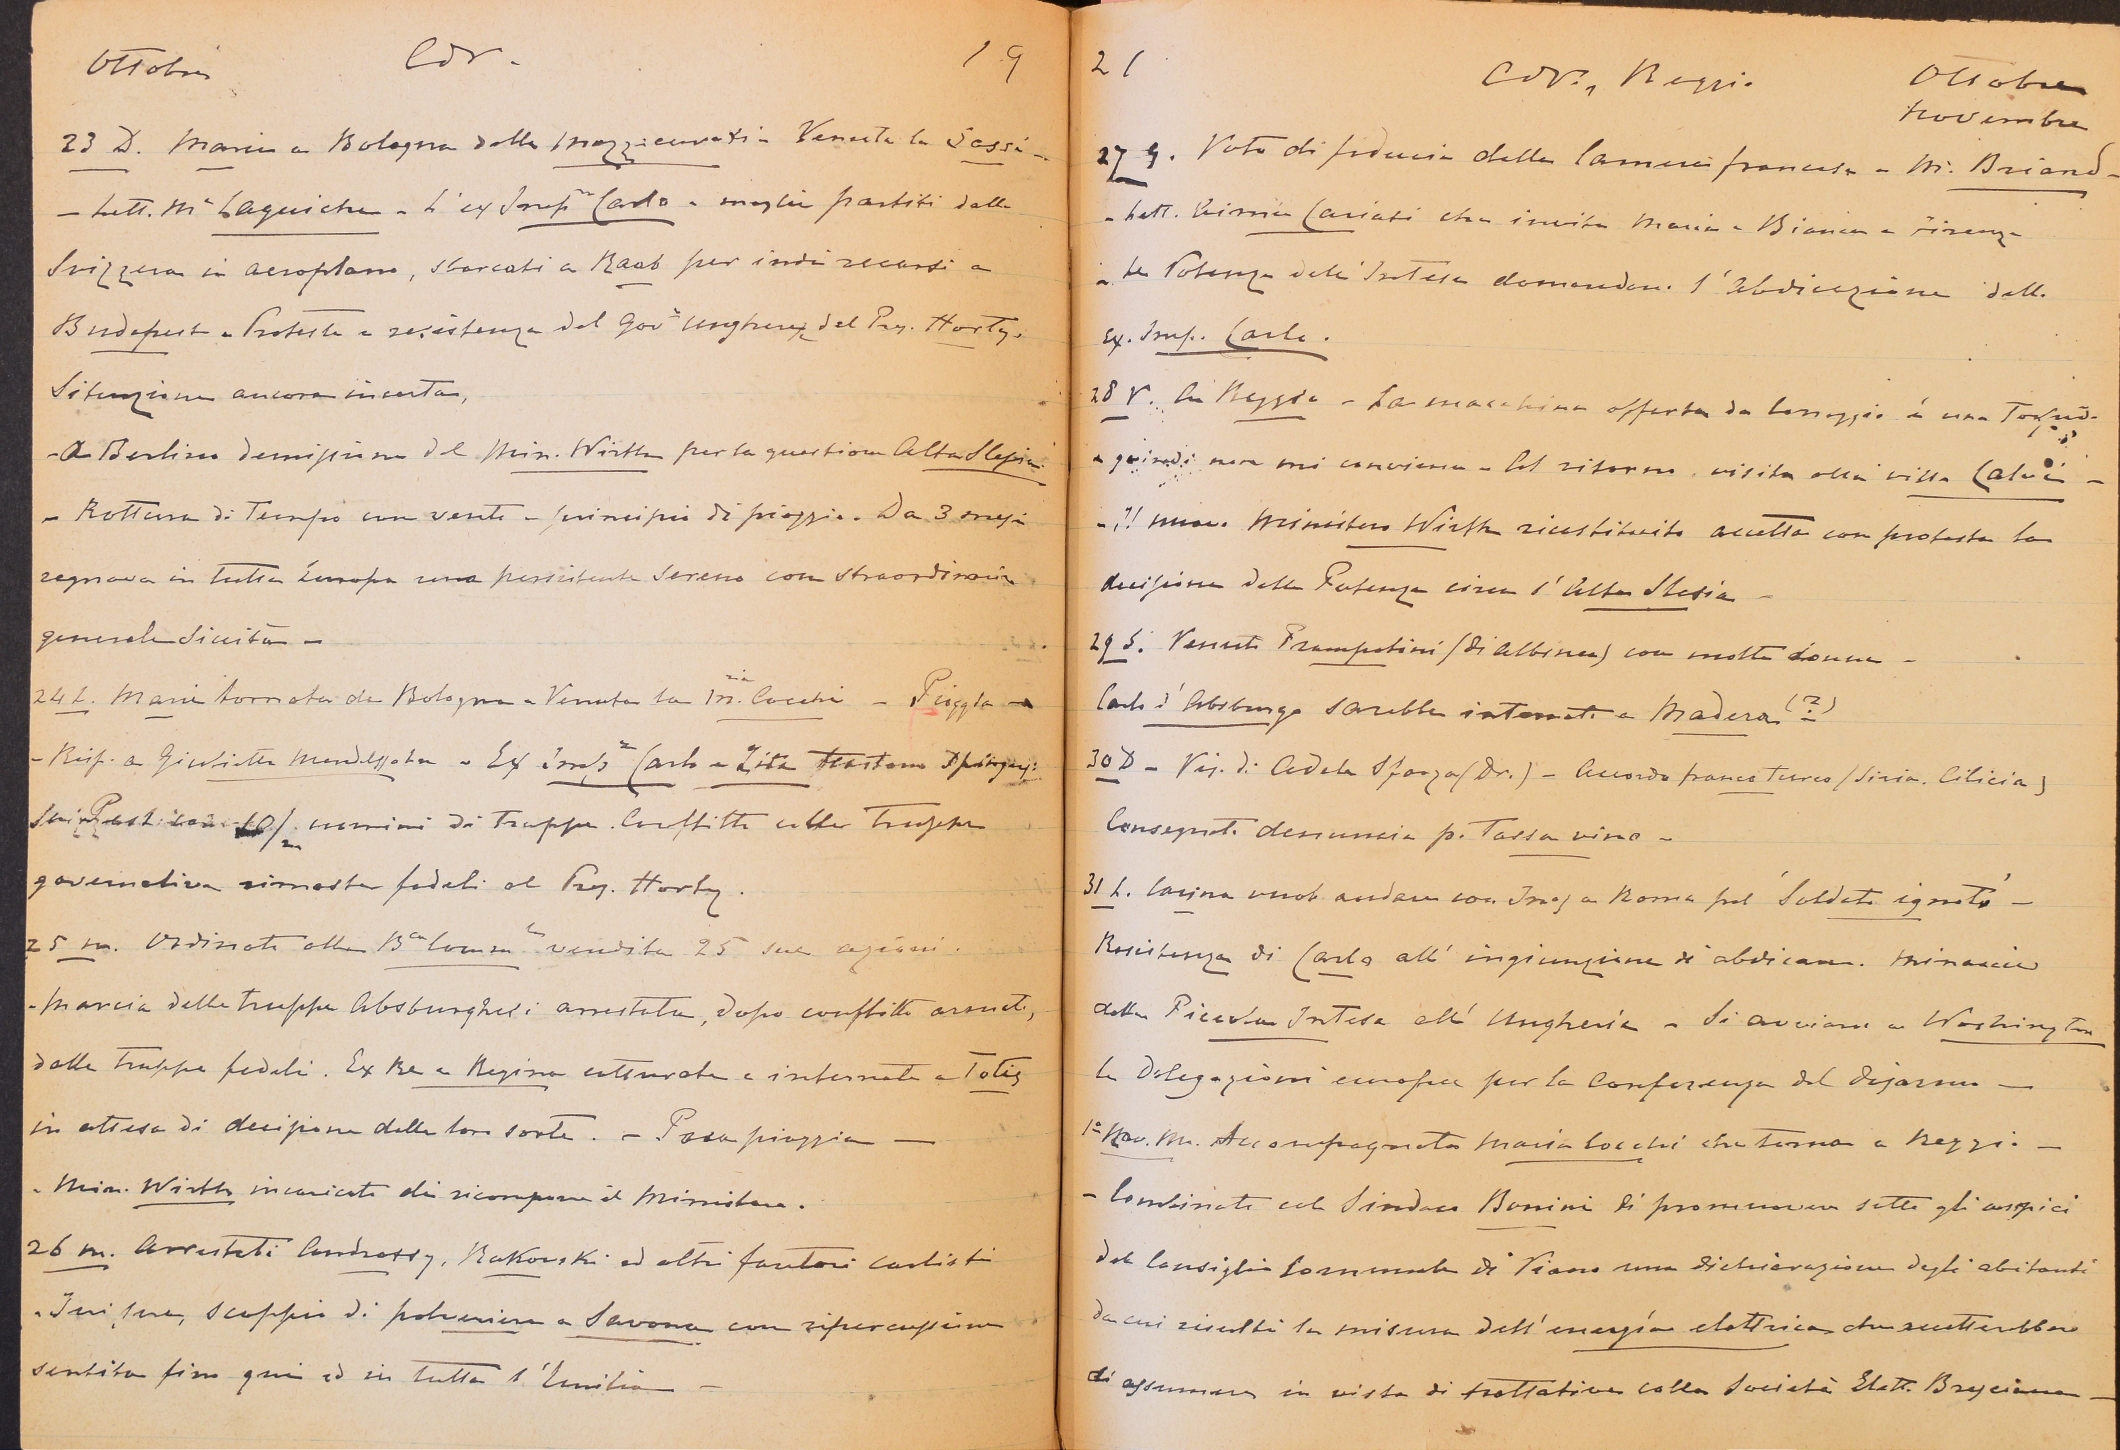 Ottobre CdV. 19
23 D. Maria a Bologna dalla Mazzacurati - Venuta la Sassi -
- Lett. Me Laguiche - L'ex Imp.re Carlo e moglie partiti dalla
Svizzera in aeroplano, sbarcati a Raab per indi recarsi a
Budapest - Proteste e resistenza del Gov.o Ungherese del Pres. Horty.
Situazione ancora incerta,
- A Berlino demissione del Min. Wirth per la questione Alta Slesia
- Rottura di Tempo con vento e principio di pioggia. Da 3 mesi
regnava in tutta Europa una persistente sereno con straordinaria
generale siccità -
24 L. Maria tornata da Bologna - Venuta la M.ria Cocchi - Pioggia -
- Risp. a Giulietta - Ex Imp.re Carlo e Zita
su Pest con 10/m uomini di truppa. Conflitto colle truppe
governative rimaste fedeli al Pres. Horty.
25 M. Ordinato alla B.ca Comm.le vendita 25 sue azioni.
- Marcia delle truppe Absburghesi arrestata, dopo conflitti armati,
dalle truppe fedeli. Ex Re e Regina catturati e internati a Totis
in attesa di decisione della loro sorte. - Poca pioggia -
- Min. Wirth incaricato di ricomporre il Ministero.
26 m. Arrestati Andrassy, Rakouski ed altri fautori carlisti
- Ieri sera, scoppio di polveriera a Savona con ripercussione
sentita fino qui ed in tutta l'Emilia -
21 CdV., Reggio Ottobre
Novembre
27 G. Voto di fiducia della Camera francese a M. Briand -
- Lett. Cariati che invita Maria e Bianca a Firenze
- Le Potenze dell'Intesa domandano l'abdicazione dell'
Ex. Imp. Carlo.
28 V. A Reggio - La macchina offerta da Correggio è una
e quindi non mi conviene - Al ritorno visita alla villa Calvi -
- Il nuovo Ministero Wirth ricostituito accetta con protesta la
decisione delle Potenze circa l'Alta Slesia -
29 S. Venuti Prampolini (di Albinea) con molte donne -
Carlo d'Absburgo sarebbe internato a Madera (?)
30 D - Vis. di Adele Sforza (Dr.) - Accordo franco turco (Siria. Cilicia)
Consegnata denuncia p. Tassa vino -
31 L. Casina vuol andare con a Roma pel 'Soldato ignoto' -
Resistenza di Carlo all'ingiunzione di abdicare. Minaccie
della Piccola Intesa all'Ungheria - Si avviano a Washington
le Delegazioni europee per la Conferenza del disarmo -
1° Nov. M. Accompagnata Maria Cocchi che torna a Reggio -
- Combinato col Sindaco Bonini di promuovere sotto gli auspici
del Consiglio Comunale di Viano una dichiarazione degli abitanti
da cui risulti la misura dell'energia elettrica che accetterebbero
di assumere in vista di trattative colla Società Elett. Bresciana -